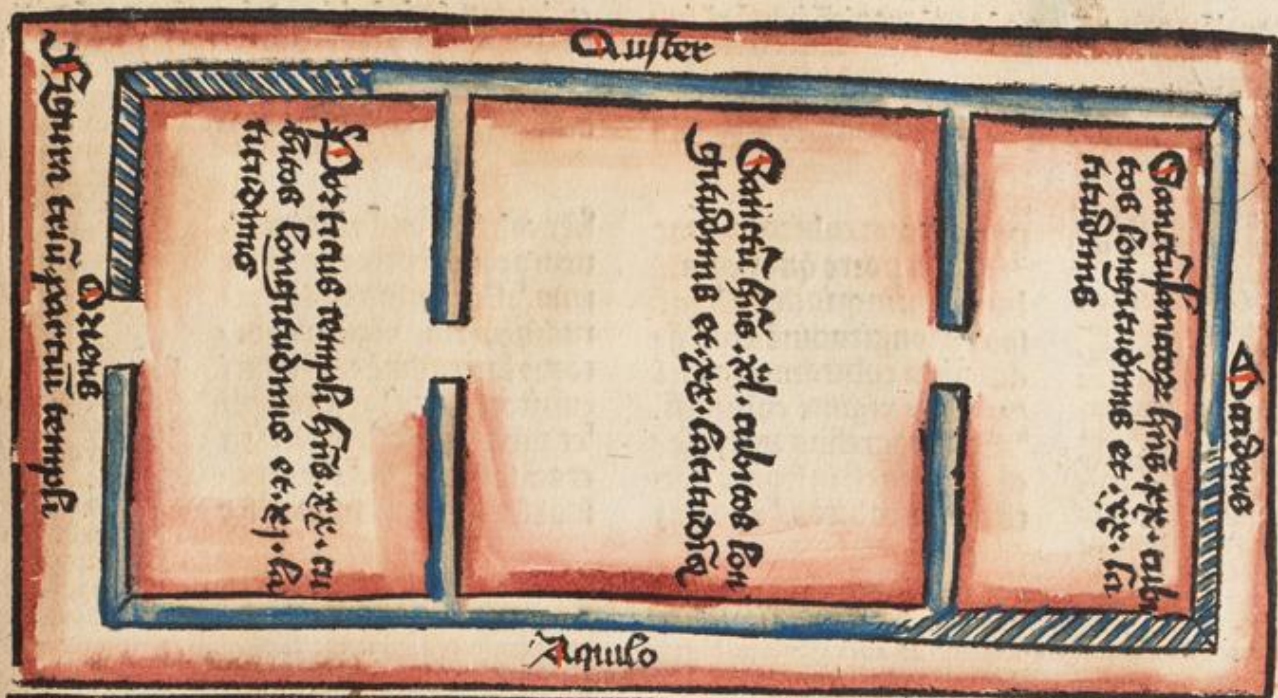 Auster
Figura triũ partiũ templi
Oriens
Porticus templi hñs .xx. cu
bitos longitudinis et .xj. la
titudinis
Sanctũ hñs .xl. cubitos lon
gitudinis et .xx. latitudĩs
Sanctũ sanctoꝝ hñs .xx. cubi
tos longitudinis et .xx. la
titudinis
Occidens
Aquilo